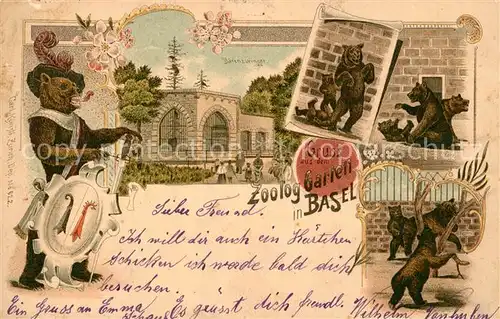 Bärenzwinger
Gruss
aus dem
Zoolog. Garten
in BASEL
Lieber Freund.
Ich will dir auch ein Kärtchen
schicken ich werde bald dich
besuchen.
Ein Gruss an Emma
Es grüsst dich freundl. Wilhelm